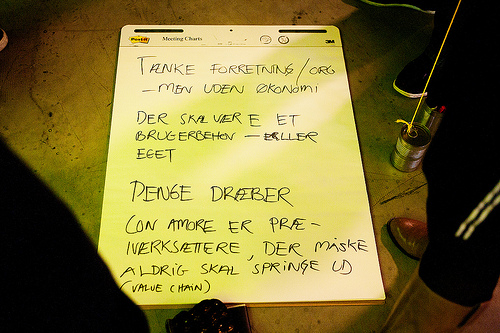 Post-it Meeting Charts 3M
TÆNKE FORRETNING/ORG
- MEN UDEN ØKONOMI
DER SKAL VÆRE ET
BRUGERBEHOV - ELLER
EGET
PENGE DRÆBER
CON AMORE ER PRÆ-
IVÆRKSÆTTERE, DER MÅSKE
ALDRIG SKAL SPRINGE UD
(VALUE CHAIN)